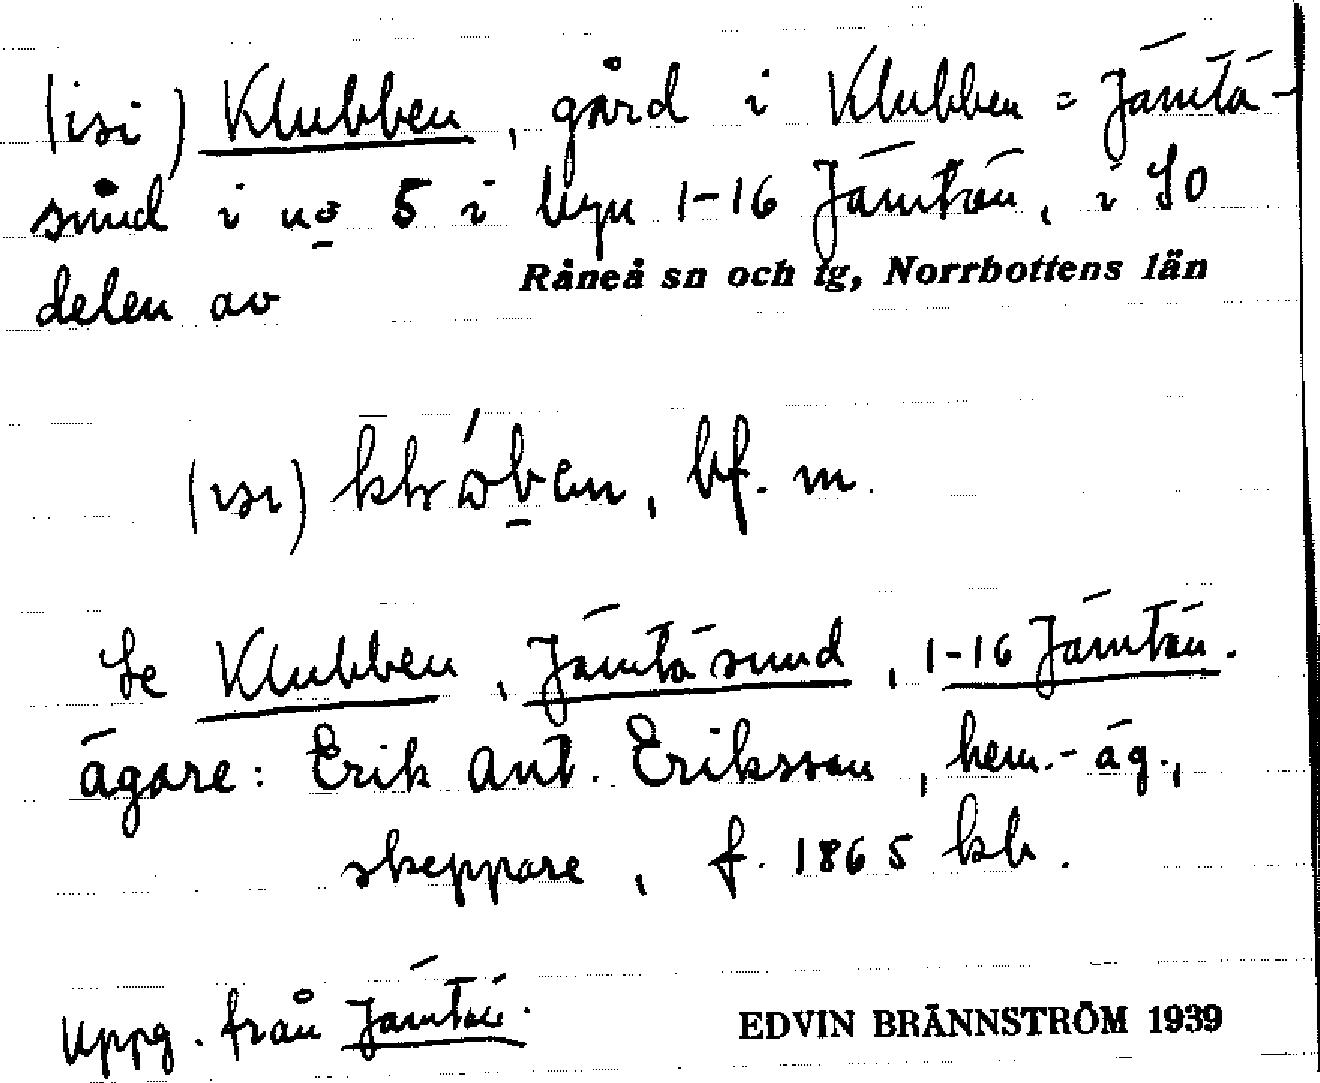 (isi) Klubben, gård i Klubben = Jämtö-
sund i no 5 i byn 1-16 Jämtön, i SO
delen av Råneå sn och tg, Norrbottens län
(isi) bf. m.
Se Klubben, Jämtösund, 1-16 Jämtön.
ägare: Erik Ant. Eriksson, hem.-äg.,
skeppare, f. 1865 kb.
Uppg. från Jämtö. EDVIN BRÄNNSTRÖM 1939